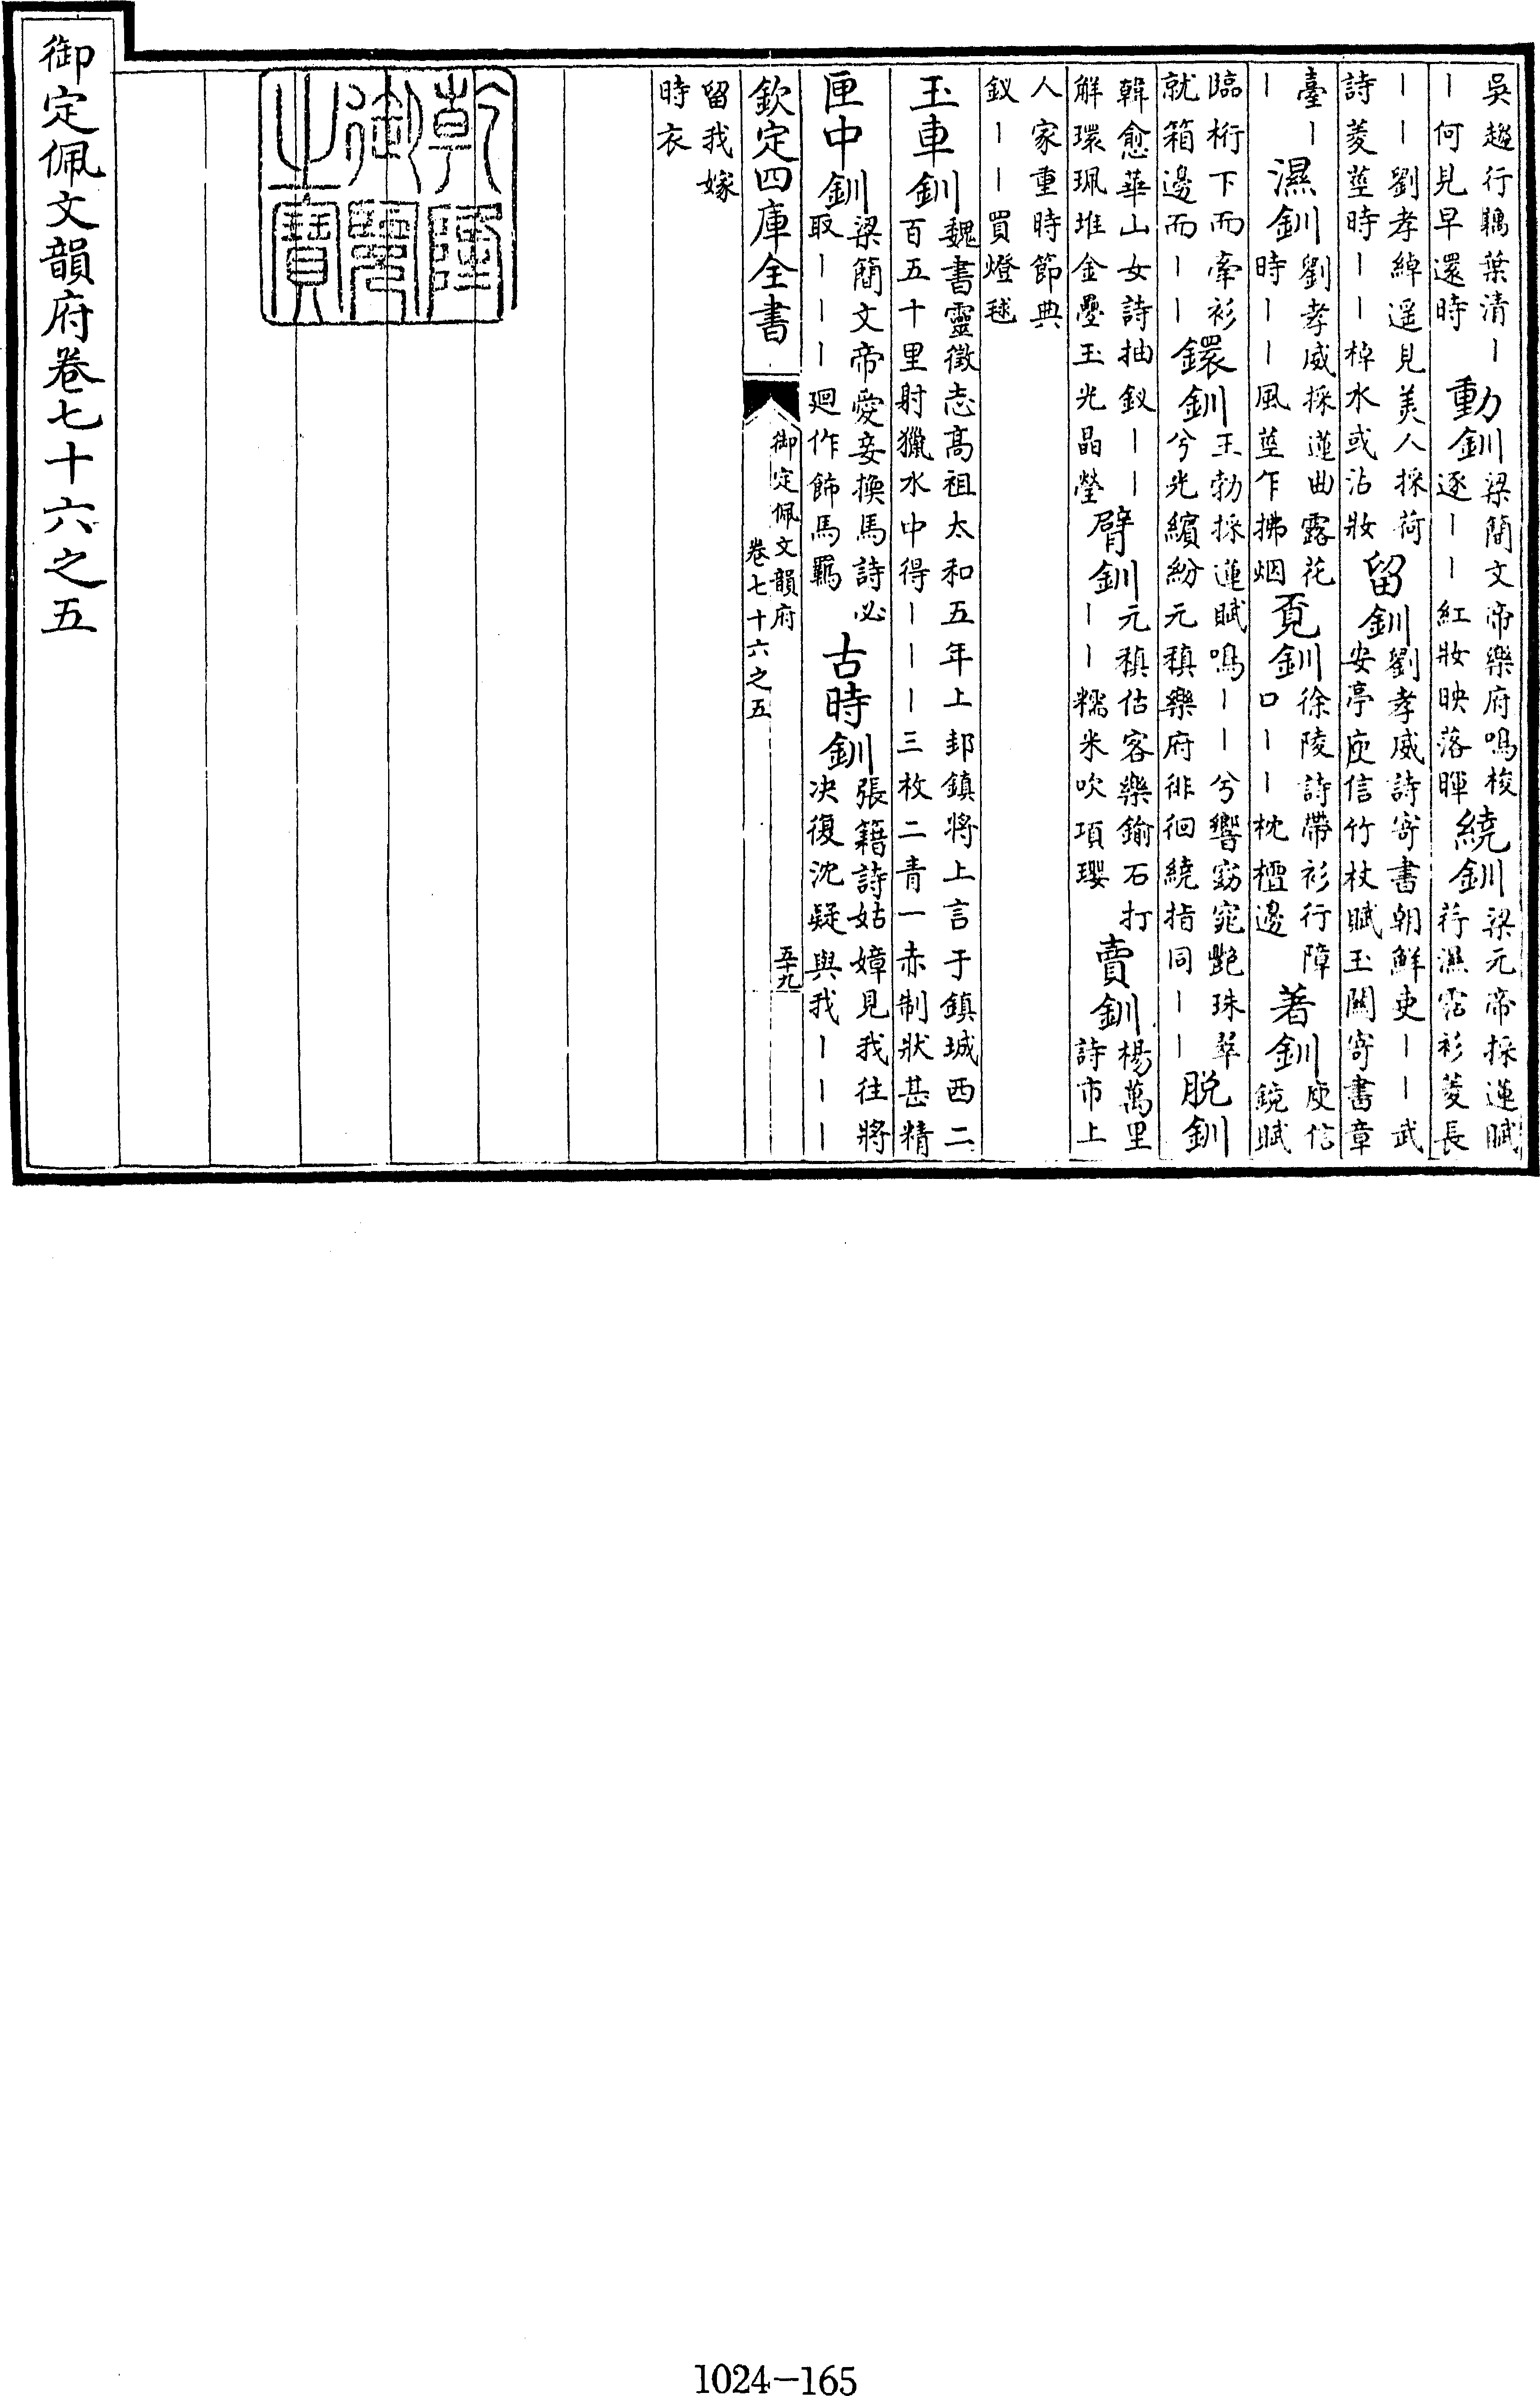 吳趨行耦葉清丨丨何見早還時 動釧 梁簡文帝樂府鳴梭逐丨丨紅妝映落暉 繞釧 梁元帝採蓮賦荇濕沾衫菱長
丨丨劉孝綽遥見美人採荷詩菱莖時丨丨棹水或沾妝 留釧 劉孝威詩寄書朝鮮吏丨丨武安亭庾信竹杖賦玉關寄書章
臺丨丨 濕釧 劉孝威採蓮曲露花時丨丨風莖乍拂烟 覔釧 徐陵詩帶衫行障口丨丨枕檀邊 著釧 庾信鏡賦
臨桁下而牽衫就箱邊而丨丨 鐶釧 王勃採蓮賦鳴丨丨兮響窈窕艷珠翠兮光繽紛元稹樂府徘徊繞指同丨丨 脱釧
韓愈華山女詩抽釵丨丨解環珮堆金疊玉光晶瑩 臂釧 元稹估客樂鍮石打丨丨糯米吹項瓔 賣釧 楊萬里詩市上
人家重時節典釵丨丨買燈毬
玉車釧 魏書靈徵志高祖太和五年上邽鎮將上言于鎮城西二百五十里射獵水中得丨丨丨三枚二青一赤制狀甚精
匣中釧 梁簡文帝愛妾換馬詩必取丨丨丨廻作飾馬羈 古時釧 張籍詩姑嫜見我往將决復沈疑與我丨丨丨
欽定四庫全書
御定佩文韻府
卷七十六之五
五十九
留我嫁時衣
乾隆御覽之寶
御定佩文韻府卷七十六之五
1024-165